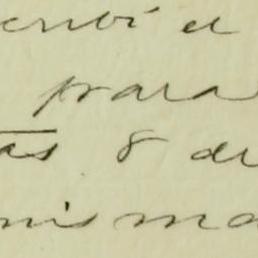 cribí el
para
as 8 de
mis ma